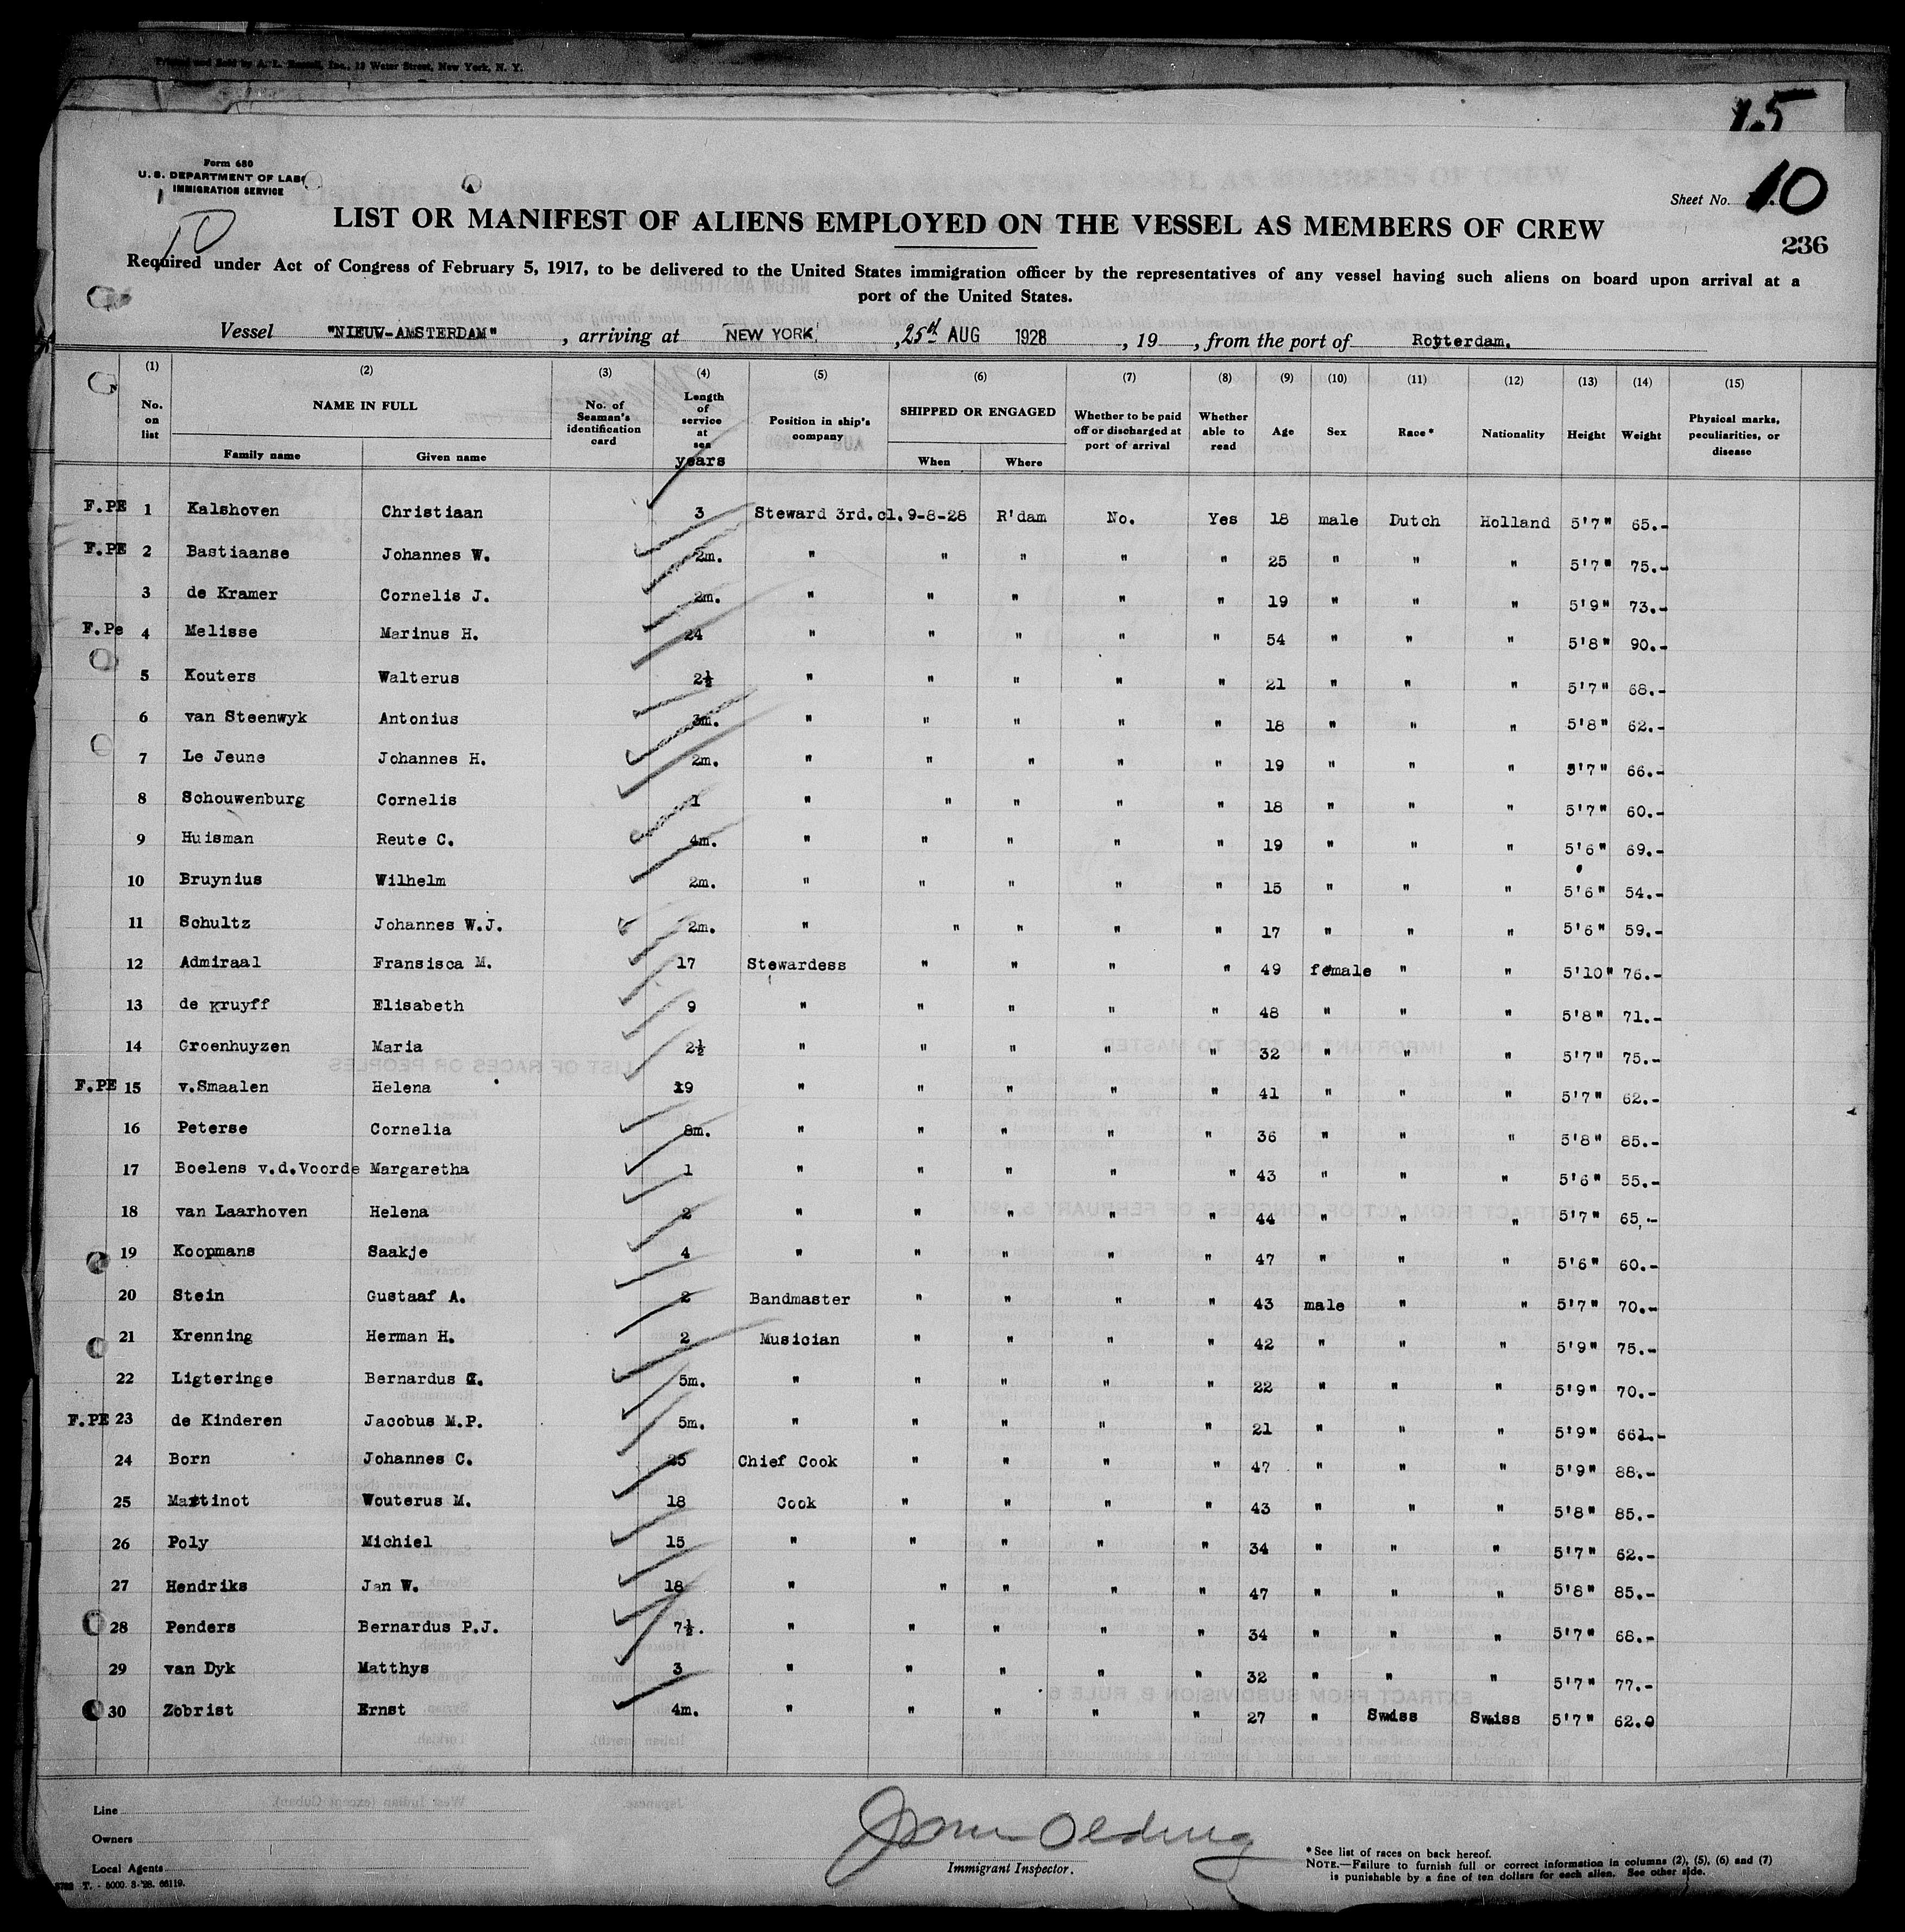 Printed and Sold by A. L. Russell, Inc., 12 Water Street, New York, N. Y.
15
Form 680
U. S. DEPARTMENT OF LABO
IMMIGRATION SERVICE
Sheet No. 10
10
LIST OR MANIFEST OF ALIENS EMPLOYED ON THE VESSEL AS MEMBERS OF CREW
236
Required under Act of Congress of February 5, 1917, to be delivered to the United States immigration officer by the representatives of any vessel having such aliens on board upon arrival at a
port of the United States.
Vessel "NIEUW-AMSTERDAM", arriving at NEW YORK, 25th AUG 1928, 19, from the port of Rotterdam.
(1) (2) (3) (4) (5) (6) (7) (8) (9) (10) (11) (12) (13) (14) (15)
No. on list NAME IN FULL Family name Given name No. of Seaman's identification card Length of service at sea years Position in ship's company SHIPPED OR ENGAGED When Where Whether to be paid off or discharged at port of arrival Whether able to read Age Sex Race* Nationality Height Weight Physical marks, peculiarities, or disease
F.PE 1 Kalshoven Christiaan 3 Steward 3rd.cl. 9-8-28 R'dam No. Yes 18 male Dutch Holland 5'7" 65.-
F.PE 2 Bastiaanse Johannes W. 2m. " " " " " 25 " " " 5'7" 75.-
3 de Kramer Cornelis J. 2m. " " " " " 19 " " " 5'9" 73.-
F.Pe 4 Melisse Marinus H. 24 " " " " " 54 " " " 5'8" 90.-
5 Kouters Walterus 2½ " " " " " 21 " " " 5'7" 68.-
6 van Steenwyk Antonius 3m. " " " " " 18 " " " 5'8" 62.-
7 Le Jeune Johannes H. 2m. " " " " " 19 " " " 5'7" 66.-
8 Schouwenburg Cornelis 1 " " " " " 18 " " " 5'7" 60.-
9 Huisman Reute C. 4m. " " " " " 19 " " " 5'6" 69.-
10 Bruynius Wilhelm 2m. " " " " " 15 " " " 5'6" 54.-
11 Schultz Johannes W.J. 2m. " " " " " 17 " " " 5'6" 59.-
12 Admiraal Fransisca M. 17 Stewardess " " " " 49 female " " 5'10" 76.-
13 de Kruyff Elisabeth 9 " " " " " 48 " " " 5'8" 71.-
14 Groenhuyzen Maria 2½ " " " " " 32 " " " 5'7" 75.-
F.PE 15 v.Smaalen Helena 19 " " " " " 41 " " " 5'7" 62.-
16 Peterse Cornelia 8m. " " " " " 36 " " " 5'8" 85.-
17 Boelens v.d.Voorde Margaretha 1 " " " " " 43 " " " 5'6" 55.-
18 van Laarhoven Helena 2 " " " " " 44 " " " 5'7" 65,.-
19 Koopmans Saakje 4 " " " " " 47 " " " 5'6" 60.-
20 Stein Gustaaf A. 2 Bandmaster " " " " 43 male " " 5'7" 70.-
21 Krenning Herman H. 2 Musician " " " " 42 " " " 5'9" 75.-
22 Ligteringe Bernardus G. 5m. " " " " " 22 " " " 5'9" 70.-
F.PE 23 de Kinderen Jacobus M.P. 5m. " " " " " 21 " " " 5'9" 661.-
24 Born Johannes C. 25 Chief Cook " " " " 47 " " " 5'9" 88.-
25 Mattinot Wouterus M. 18 Cook " " " " 43 " " " 5'8" 85.-
26 Poly Michiel 15 " " " " " 34 " " " 5'7" 62.-
27 Hendriks Jan W. 18 " " " " " 47 " " " 5'8" 85.-
28 Penders Bernardus P.J. 7½. " " " " " 34 " " " 5'7" 68.-
29 van Dyk Matthys 3 " " " " " 32 " " " 5'7" 77.-
30 Zobrist Ernst 4m. " " " " " 27 " Swiss Swiss 5'7" 62.0
Line
Owners
Local Agents
T. - 5000. 3-'28. 66119.
Immigrant Inspector.
*See list of races on back hereof.
NOTE.—Failure to furnish full or correct information in columns (2), (5), (6) and (7)
is punishable by a fine of ten dollars for each alien. See other side.